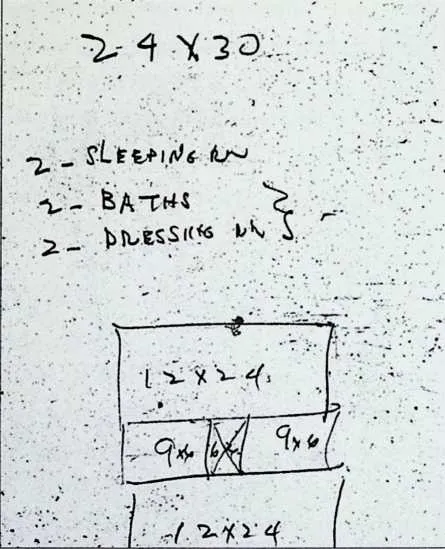 24 X 30
2 - SLEEPING RM
2 - BATHS
2 - DRESSING RM
12 X 24
9x6 6x6 9x6
12 X 24